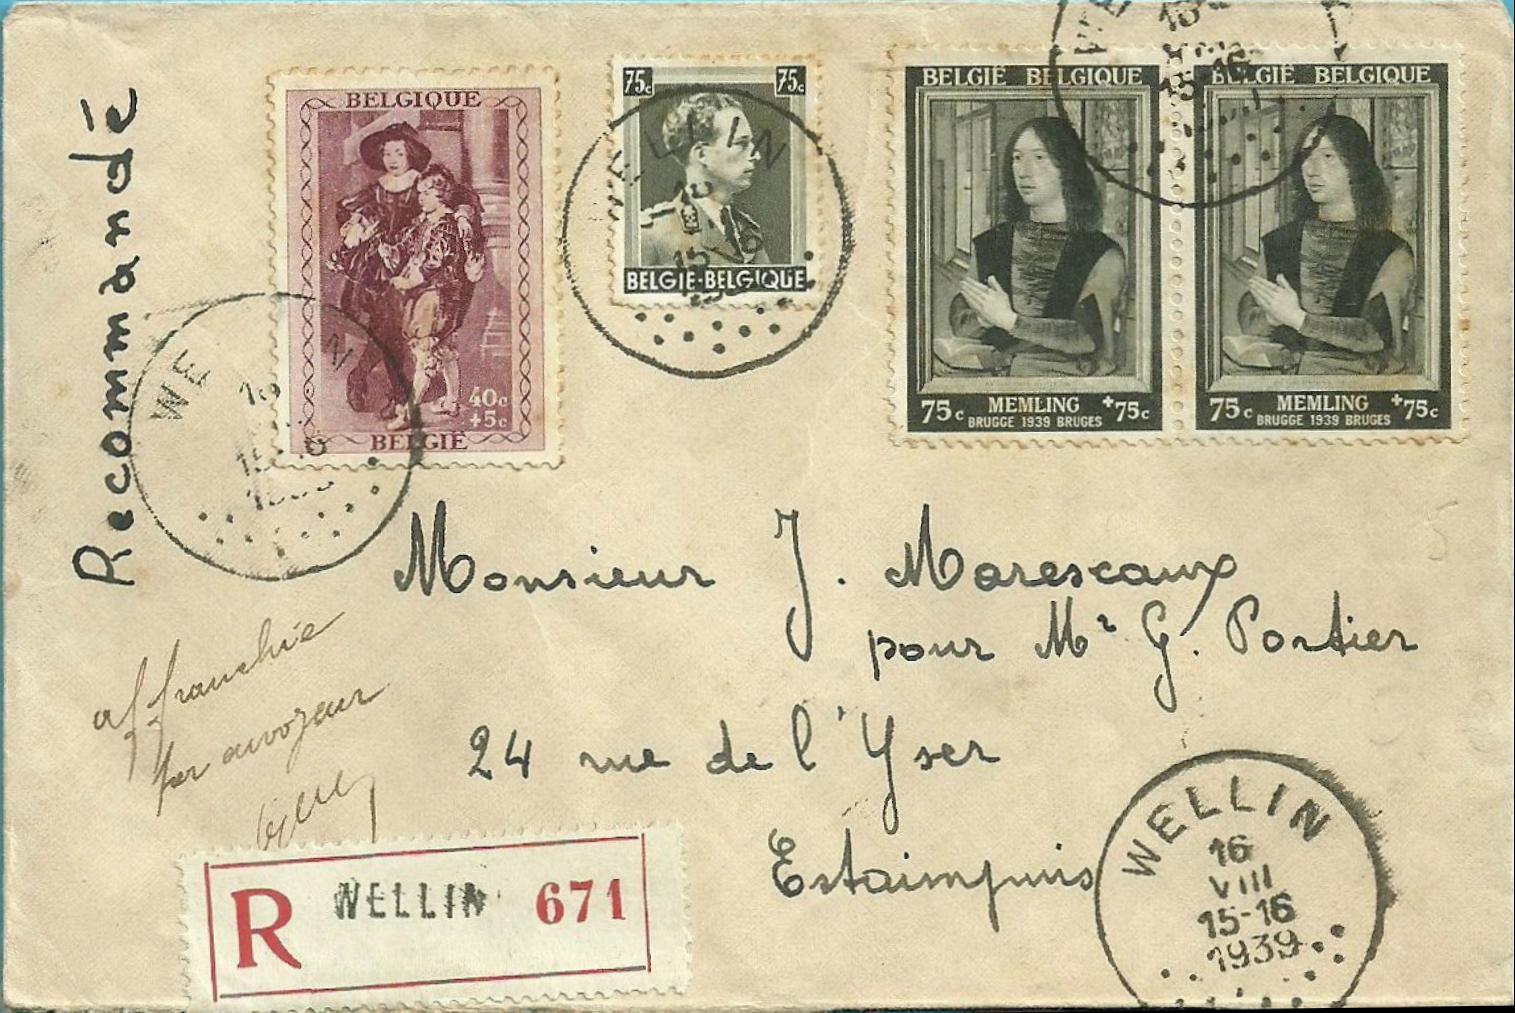 Recommandé
BELGIQUE
40c
+5c
BELGIË
75c 75c
BELGIË-BELGIQUE
BELGIË BELGIQUE
75c MEMLING +75c
BRUGGE 1939 BRUGES
BELGIË BELGIQUE
75c MEMLING +75c
BRUGGE 1939 BRUGES
WELLIN
16
Monsieur J. Marescaux
pour Mr G. Portier
24 rue de l'Yser
Estaimpuis
affranchie
par
R WELLIN 671
WELLIN
16
VIII
15-16
1939